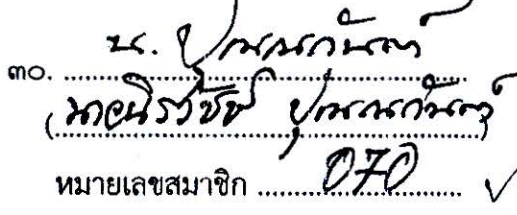 ๓๐. น. ปุณณกันต์
(นายนิรวัชช์ ปุณณกันต์)
หมายเลขสมาชิก 070 ✓